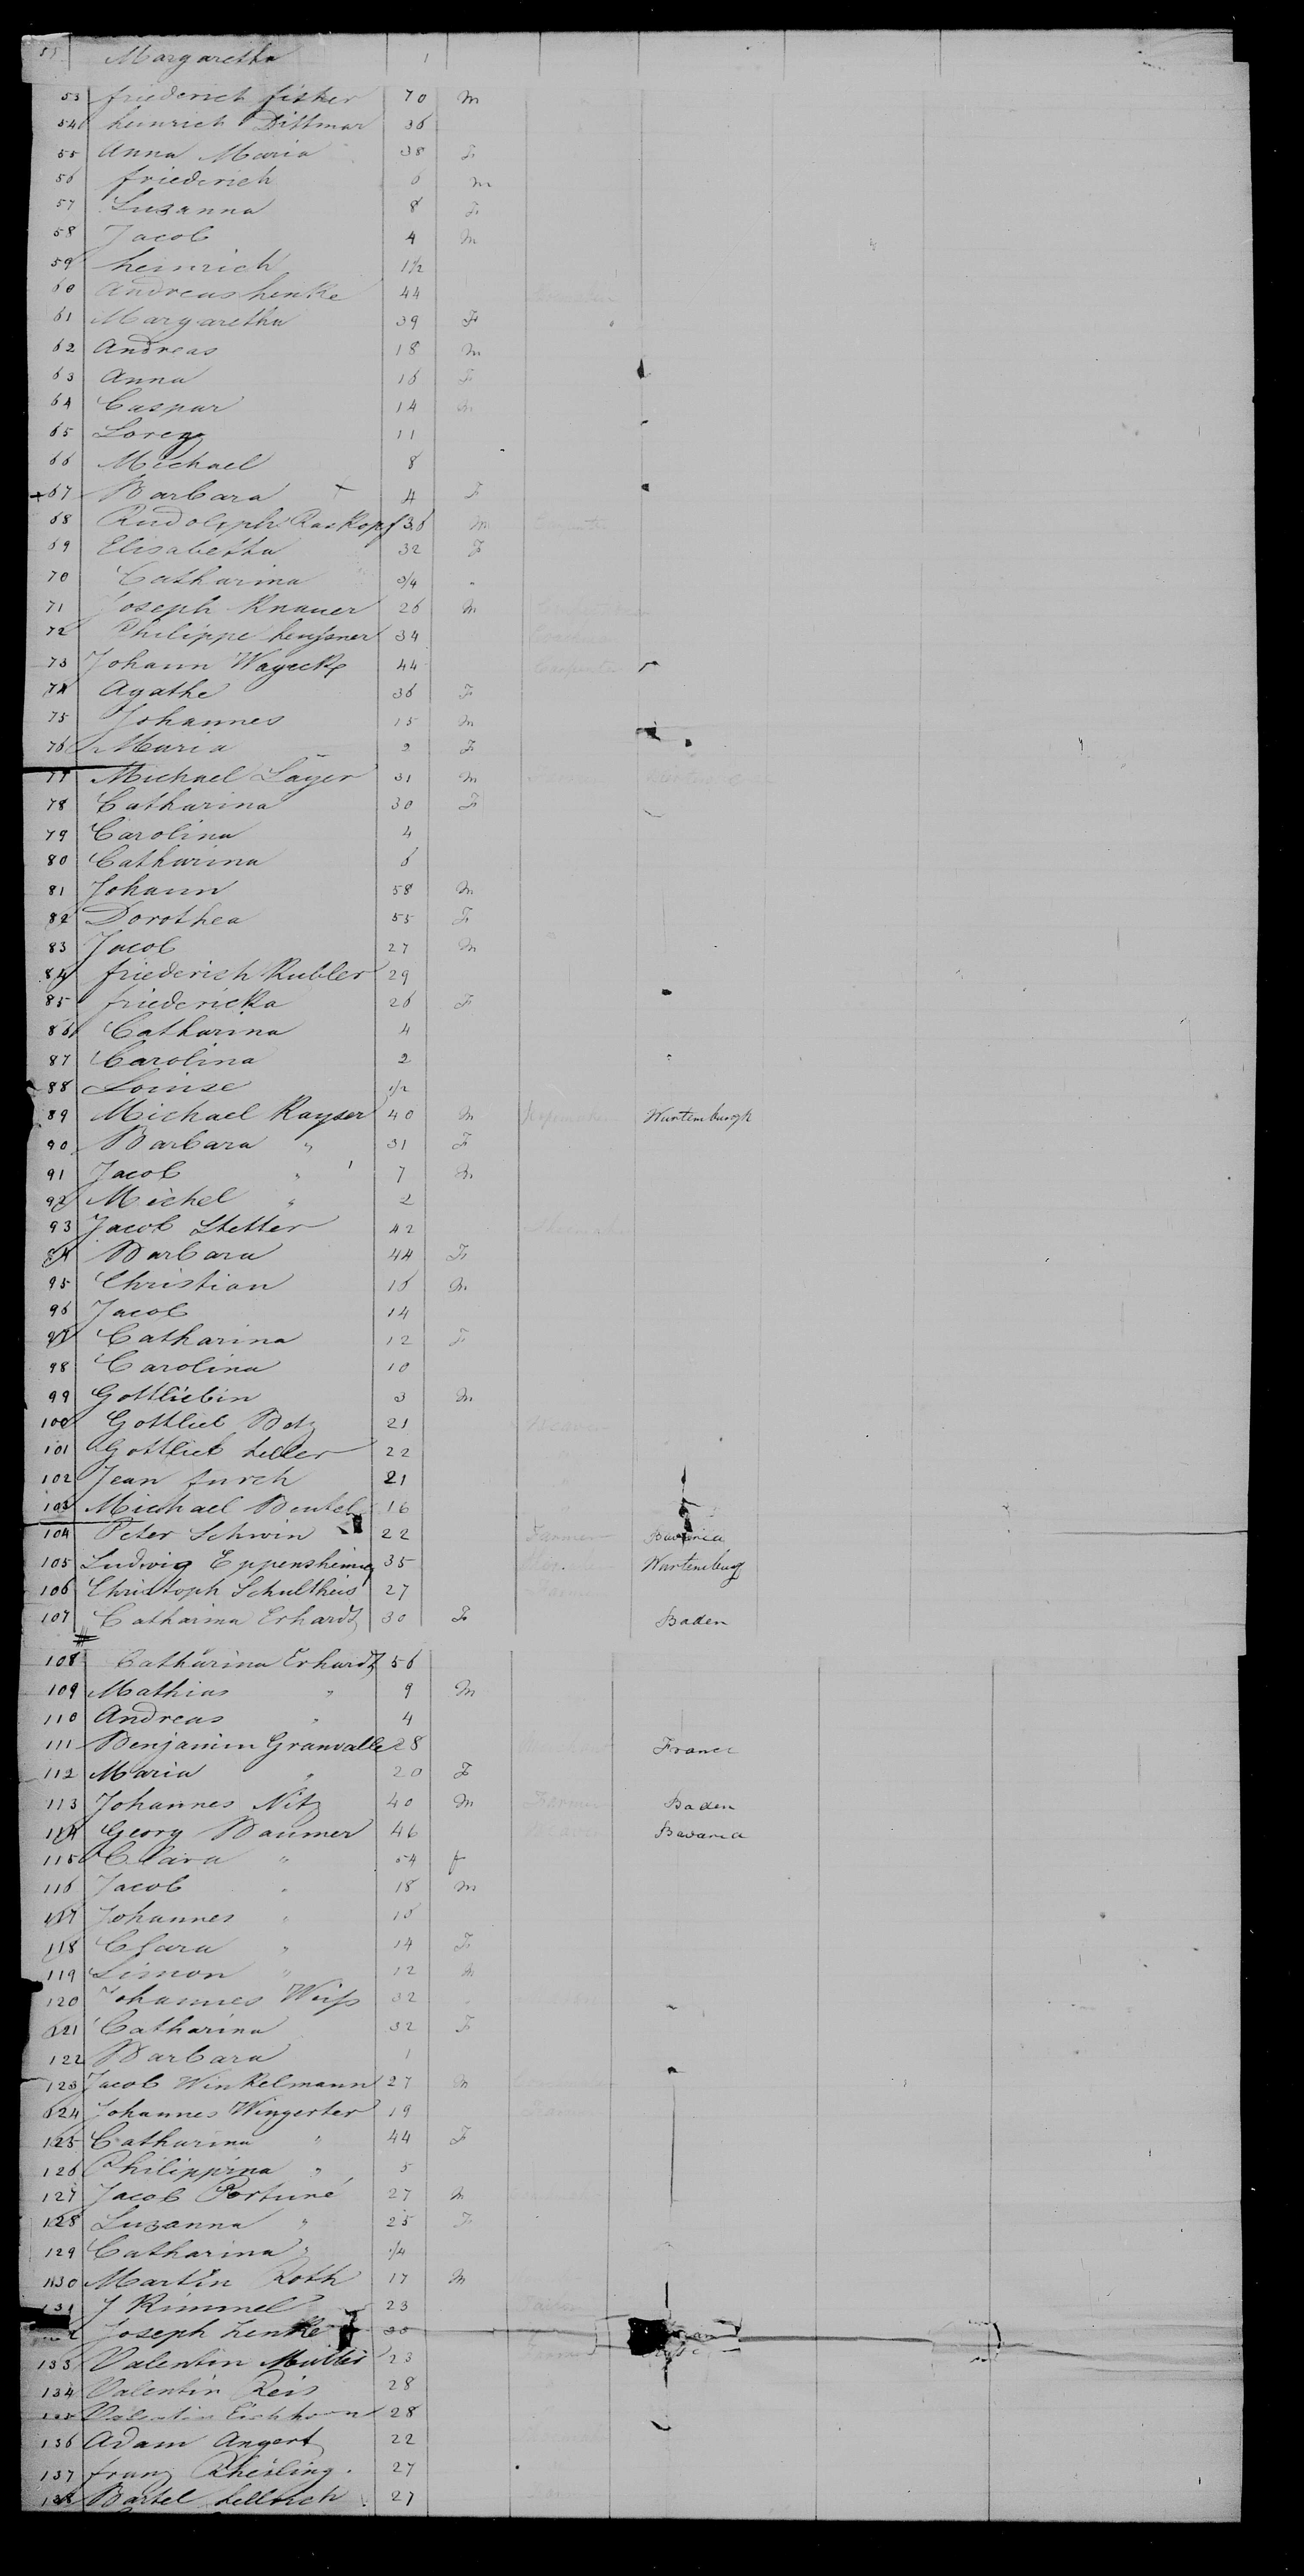 Margaretha 1
53 friederich fisher 70 m
54 heinrich Dittmar 36
55 Anna Maria 38 F
56 friederich 6 m
57 Suzanna 8 F
58 Jacob 4 m
59 heinrich 1 1/2
60 Andreas henke 44
61 Margaretha 39 F
62 Andreas 18 m
63 Anna 16 F
64 Caspar 14 m
65 Lorenz 11
66 Michael 8
+67 Barbara 4 F
68 Rudolph Raskopf 36 m
69 Elisabetha 32 F
70 Catharina 3/4 "
71 Joseph Knauer 26 m
72 Philippe 34
73 Johann 44 Carpenter
74 Agathe 36 F
75 Johannes 15 m
76 Maria 2 F
77 Michael Layer 31 m
78 Catharina 30 F
79 Carolina 4
80 Catharina 6
81 Johann 58 m
82 Dorothea 55 F
83 Jacob 27 m
84 friederich Kubler 29
85 friedericka 26 F
86 Catharina 4
87 Carolina 2
88 Louise 1/2
89 Michael Kayser 40 m Wurtemburgh
90 Barbara " 31 F
91 Jacob " 7 m
92 Michel " 2
93 Jacob Stetter 42
94 Barbara 44 F
95 Christian 16 m
96 Jacob 14
97 Catharina 12 F
98 Carolina 10
99 Gottliebin 3 m
100 Gottlieb Betz 21 Weaver
101 Gottlieb heller 22
102 Jean furch 21
103 Michael Beutel 16
104 Peter Schwin 22 Farmer Bavaria
105 Ludwig 35 Wurtemburg
106 Christoph Schultheis 27
107 Catharina Erhardt 30 F Baden
108 Catharina Erhardt 56
109 Mathias " 9 m
110 Andreas " 4
111 Benjamin Granvalle 28 France
112 Maria " 20 F
113 Johannes Nitz 40 m Farmer Baden
114 Georg Baumer 46 Weaver Bavaria
115 Clara " 54 f
116 Jacob " 18 m
117 Johannes " 16
118 Clara " 14 F
119 Simon " 12 m
120 Johannes Weiss 32
121 Catharina 32 F
122 Barbara 1
123 Jacob Winkelmann 27 m
124 Johannes Wingerter 19
125 Catharina " 44 F
126 Philippina " 5
127 Jacob Fortuné 27 m
128 Suzanna " 25 F
129 Catharina " 1/4
130 Martin Roth 17 m
131 J Kimmel 23
Joseph henke
133 Valentin Muller 23
134 Valentin Reis 28
135 Valentin Eichhorn 28
136 Adam Angert 22
137 franz Rheiling 27
138 Bartel 27